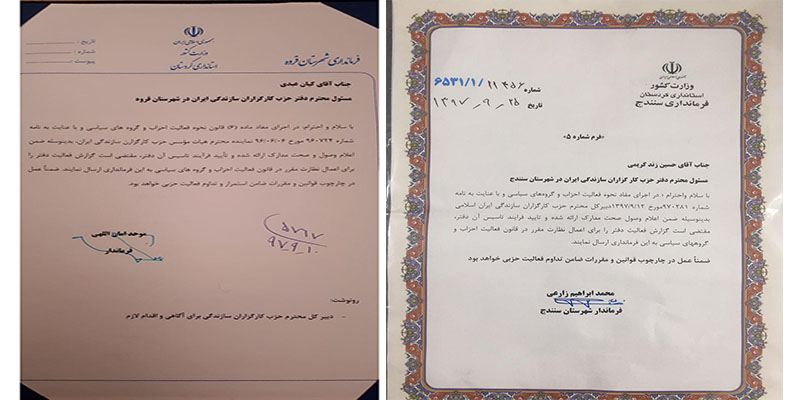 جمهوری اسلامی ایران
وزارت کشور
استانداری کردستان
فرمانداری شهرستان قروه
تاریخ :
شماره :
پیوست :
جناب آقای کیان عبدی
مسئول محترم دفتر حزب کارگزاران سازندگی ایران در شهرستان قروه
با سلام و احترام، در اجرای مفاد ماده (۶) قانون نحوه فعالیت احزاب و گروه های سیاسی و با عنایت به نامه
شماره ۹۶۰۷۲۴ مورخ ۹۶/۰۶/۰۶ نماینده محترم هیات مؤسس حزب کارگزاران سازندگی ایران، بدینوسیله ضمن
اعلام وصول و صحت مدارک ارائه شده و تأیید فرآیند تاسیس آن دفتر، مقتضی است گزارش فعالیت دفتر را
برای اعمال نظارت مقرر در قانون فعالیت احزاب و گروه های سیاسی به این فرمانداری ارسال نمایند. ضمناً عمل
در چارچوب قوانین و مقررات ضامن استمرار و تداوم فعالیت حزبی خواهد بود.
موحد امان اللهی
فرماندار
۵۷۱۷
۹۷٫۹٫۱۰
رونوشت:
- دبیر کل محترم حزب کارگزاران سازندگی برای آگاهی و اقدام لازم
جمهوری اسلامی ایران
وزارت کشور
استانداری کردستان
فرمانداری سنندج
شماره ۶۵۳۱/۱/۱۱۴۵۶
تاریخ ۱۳۹۷ـ۹ـ۲۵
«فرم شماره ۵»
جناب آقای حسین زند کریمی
مسئول محترم دفتر حزب کارگزاران سازندگی ایران در شهرستان سنندج
با سلام واحترام ؛ در اجرای مفاد نحوه فعالیت احزاب و گروههای سیاسی و با عنایت به نامه
شماره ۹۷۰۲۸۱مورخ ۱۳۹۷/۹/۱۲دبیرکل محترم حزب کارگزاران سازندگی ایران اسلامی
بدینوسیله ضمن اعلام وصول صحت مدارک ارائه شده و تایید فرایند تاسیس آن دفتر،
مقتضی است گزارش فعالیت دفتر را برای اعمال نظارت مقرر در قانون فعالیت احزاب و
گروههای سیاسی به این فرمانداری ارسال نمایند.
ضمناً عمل در چارچوب قوانین و مقررات ضامن تداوم فعالیت حزبی خواهد بود
محمد ابراهیم زارعی
فرماندار شهرستان سنندج